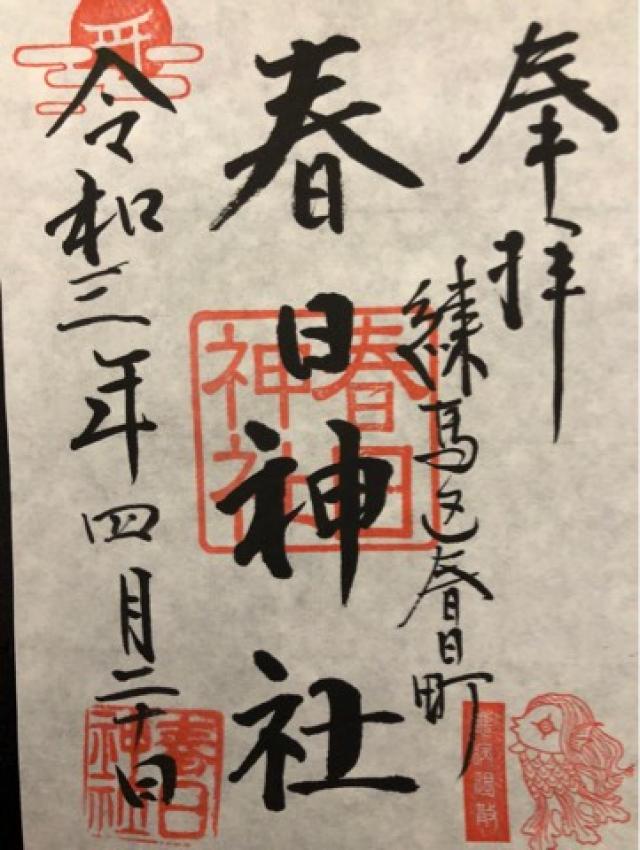 奉拝
練馬区春日町
春日神社
春日神社
令和三年四月二十日
春日神社